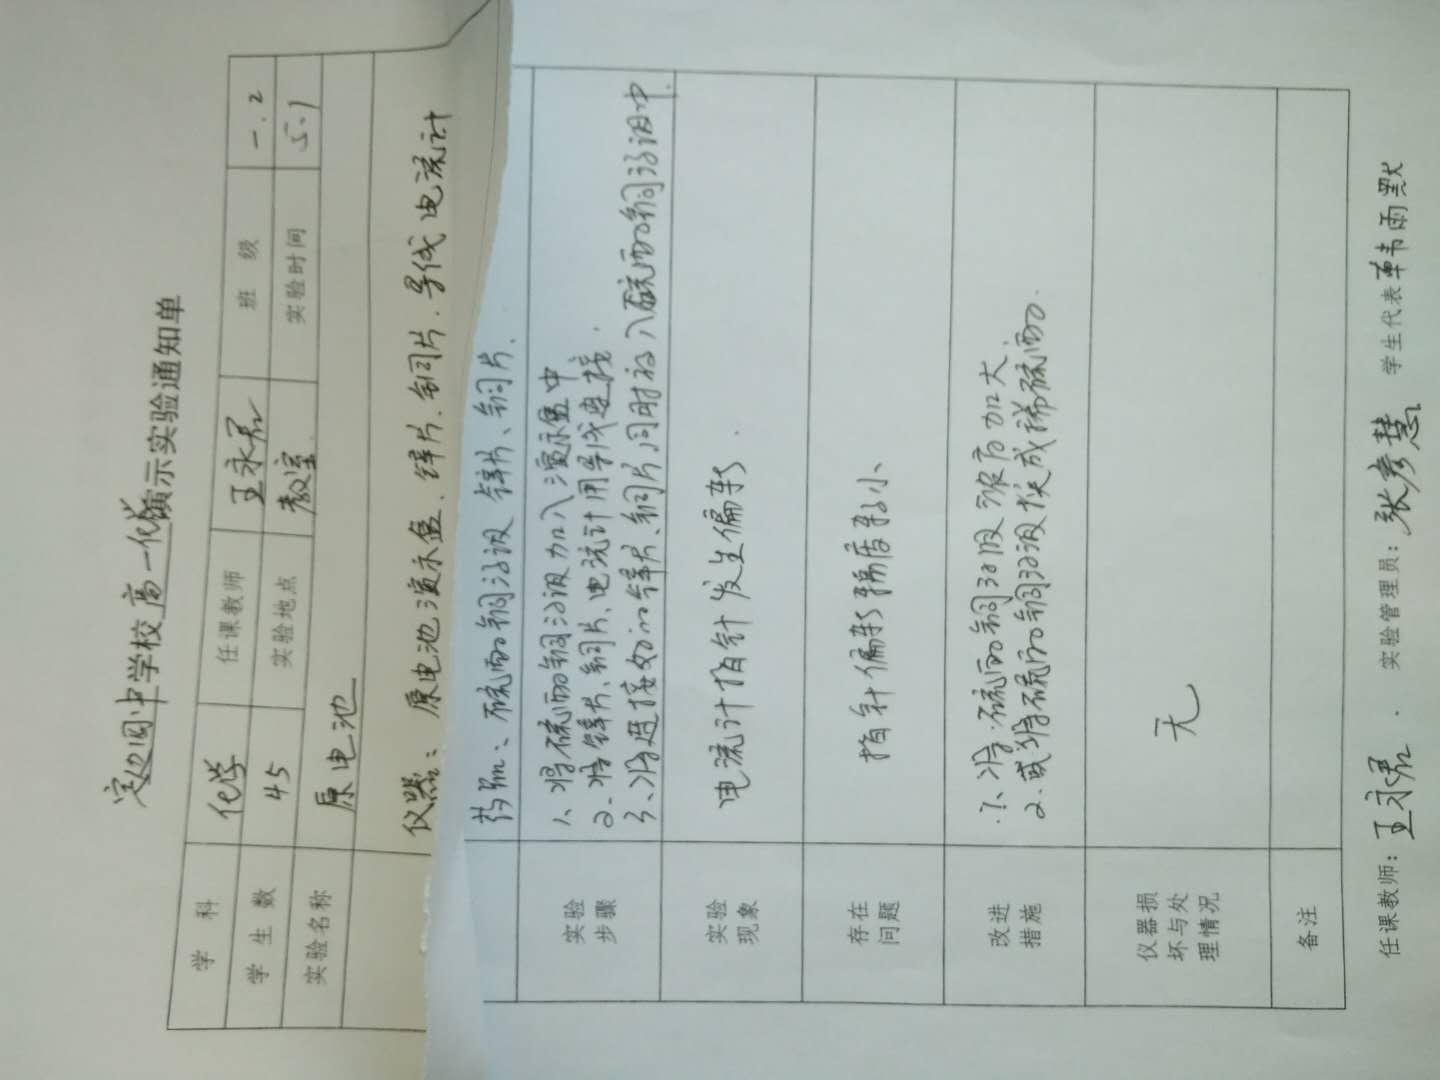 定边四中学校高一化学演示实验通知单
学 科 化学 任课教师 王永君 班 级 一.2
学 生 数 45 实验地点 教室 实验时间 5.1
实验名称 原电池
仪器: 原电池演示盒、锌片、铜片、导线 电流计
药品: 硫酸铜溶液 锌片、铜片.
实验步骤
1、将硫酸铜溶液加入演示盒中
2、将锌片、铜片、电流计用导线连接.
3、将连接好的锌片、铜片同时放入硫酸铜溶液中.
实验现象
电流计指针发生偏转.
存在问题
指针偏转幅度较小
改进措施
1、将硫酸铜溶液浓度加大.
2、或将硫酸铜溶液换成稀硫酸.
仪器损坏与处理情况
无
备注
任课教师: 王永君 实验管理员: 张彦慧 学生代表 韩雨默